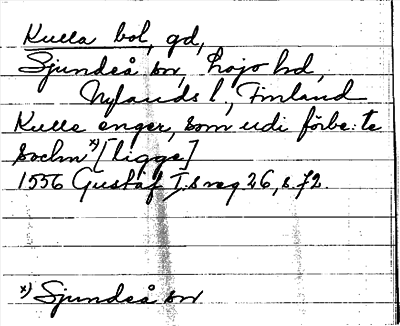 Kulla bol, gd,
Sjundeå sn, Lojo hd,
Nylands l., Finland
Kulle enger, som udi förbe:te
sochn x) [ligge]
1556 Gustaf I:s reg 26, s. 72.
x) Sjundeå sn